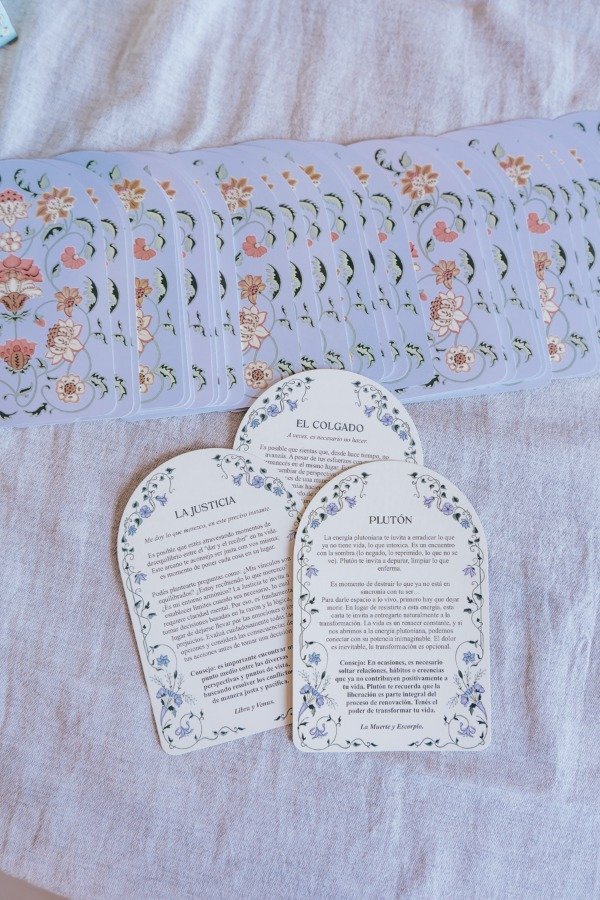 EL COLGADO
A veces, es necesario no hacer.
Es posible que sientas que, desde hace tiempo, no
avanzás. A pesar de tus esfuerzos
en el mismo lugar.
cambiar de
de una
LA JUSTICIA
Me doy lo que merezco, en este preciso instante.
Es posible que estés atravesando momentos de
desequilibrio entre el "dar y el recibir" en tu vida.
Este arcano te aconseja ser justa con vos misma;
es momento de poner cada cosa en su lugar.
Podés plantearte preguntas como: ¿Mis vínculos son
equilibrados? ¿Estoy recibiendo lo que merezco?
¿Es mi entorno armonioso? La Justicia te invita a
establecer límites cuando sea necesario, lo cual
requiere claridad mental. Por eso, es fundamental
tomar decisiones basadas en la razón y la lógica,
lugar de dejarse llevar por las emociones o los
prejuicios. Evalúa cuidadosamente todas las
opciones y considerá las consecuencias de
tus acciones antes de tomar una decisión.
Consejo: es importante encontrar un
punto medio entre las diversas
perspectivas y puntos de vista,
buscando resolver los conflictos
de manera justa y pacífica.
Libra y Venus.
PLUTÓN
La energía plutoniana te invita a erradicar lo que
ya no tiene vida, lo que intoxica. Es un encuentro
con la sombra (lo negado, lo reprimido, lo que no se
ve). Plutón te invita a depurar, limpiar lo que
enferma.
Es momento de destruir lo que ya no está en
sincronía con tu ser.
Para darle espacio a lo vivo, primero hay que dejar
morir. En lugar de resistirte a esta energía, esta
carta te invita a entregarte naturalmente a la
transformación. La vida es un renacer constante, y si
nos abrimos a la energía plutoniana, podemos
conectar con un potencial inimaginable. El dolor
es inevitable, la transformación es opcional.
Consejo: En ocasiones, es necesario
soltar relaciones, hábitos o creencias
que ya no contribuyen positivamente a
tu vida. Plutón te recuerda que la
liberación es parte integral del
proceso de renovación. Tenés el
poder de transformar tu vida.
La Muerte y Escorpio.